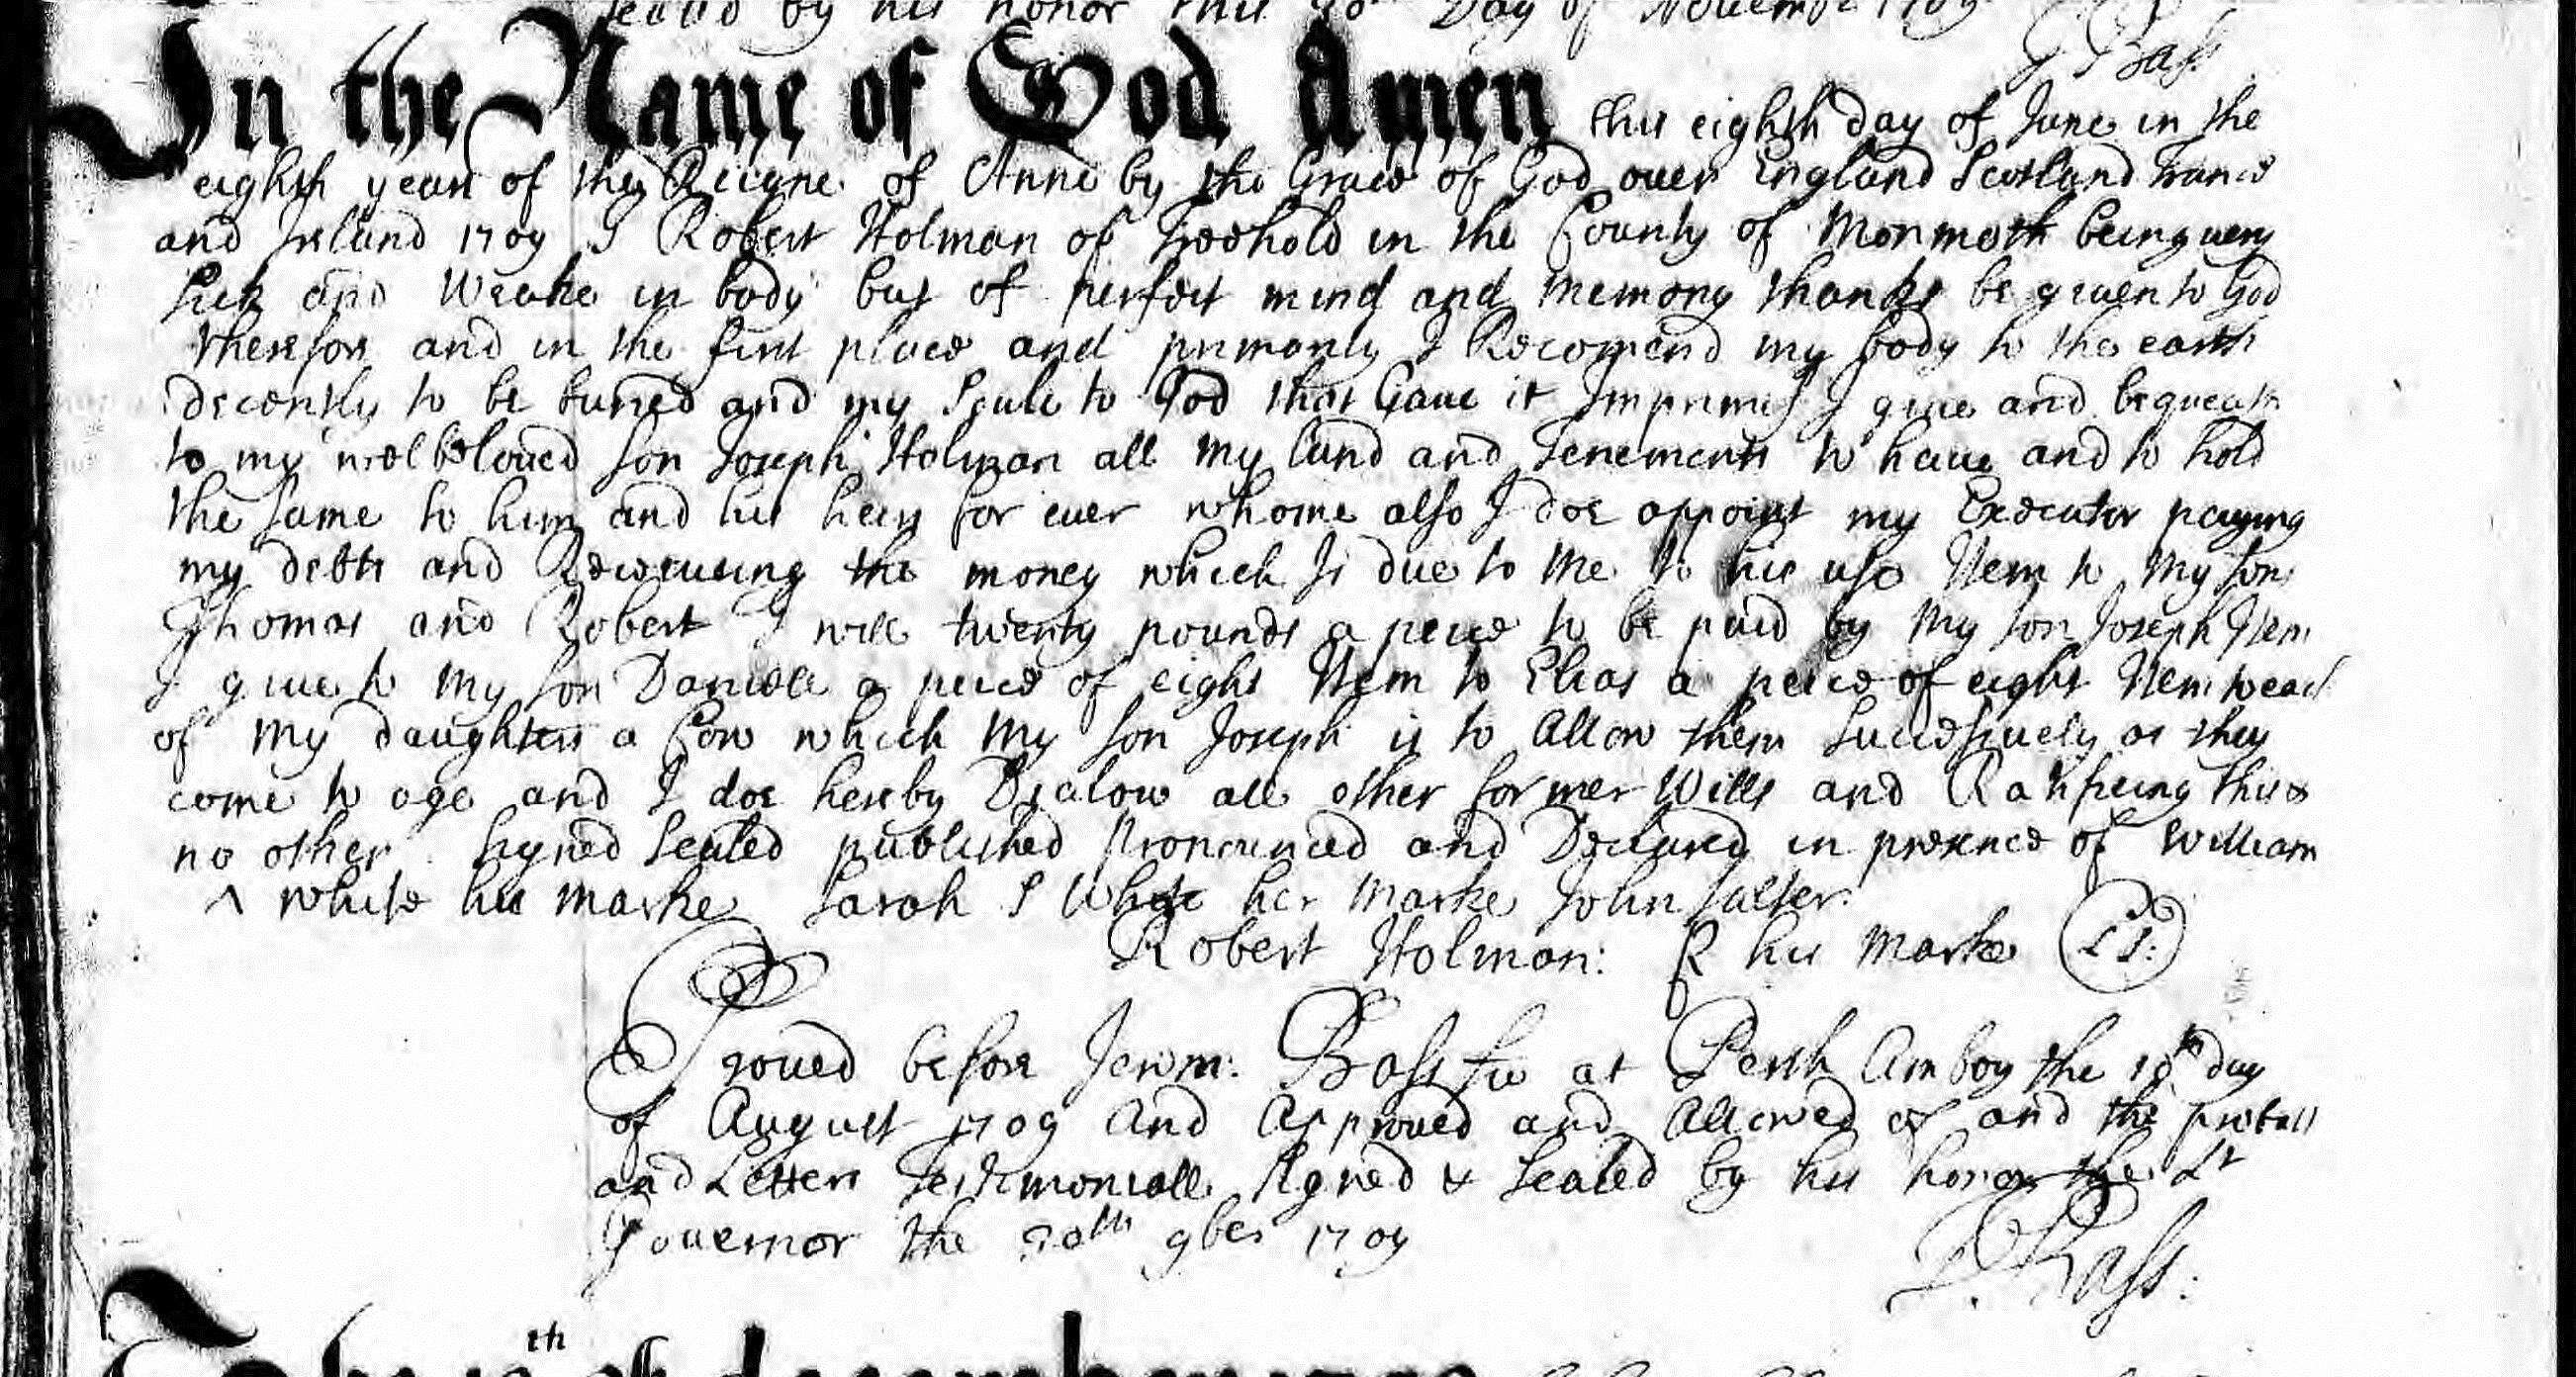 sealed by his honor this 30th Day of November 1709
J Bass
In the Name of God Amen this eighth day of June in the
eighth year of the Reigne of Anne by the Grace of God over England Scotland France
and Ireland 1709 I Robert Holman of freehold in the County of Monmoth being very
sick and Weake in body but of perfect mind and memory thanks be given to God
therefore and in the first place and primarily I Recomend my body to the earth
decently to be buried and my Soule to God that Gave it Imprimis I give and bequeath
to my welbeloved son Joseph Holman all my land and Tenements to have and to hold
the same to him and his heirs for ever whome also I doe appoint my Executor paying
my debts and Receiveing the money which Is due to me to his use Item to my son
Thomas and Robert I will twenty pounds a peice to be paid by my son Joseph Item
I give to my son Daniell a peice of eight Item to Elias a peice of eight Item to each
of my daughters a Cow which my son Joseph is to Allow them Successively as they
come to age and I doe hereby Disalow all other former Wills and Ratifieing this &
no other Signed Sealed published Pronounced and Declared in presence of William
Λ white his marke Sarah S White her marke John Salter
Robert Holman: R his marke LS:
Proved before Jerem: Bass at Perth Amboy the 10th day
of August 1709 And Approved and Allowed of and the probatt
and Letters Testimoniall Signed & Sealed by his honor the Lt
Governor the 30th 9ber 1709
J. Bass:
th